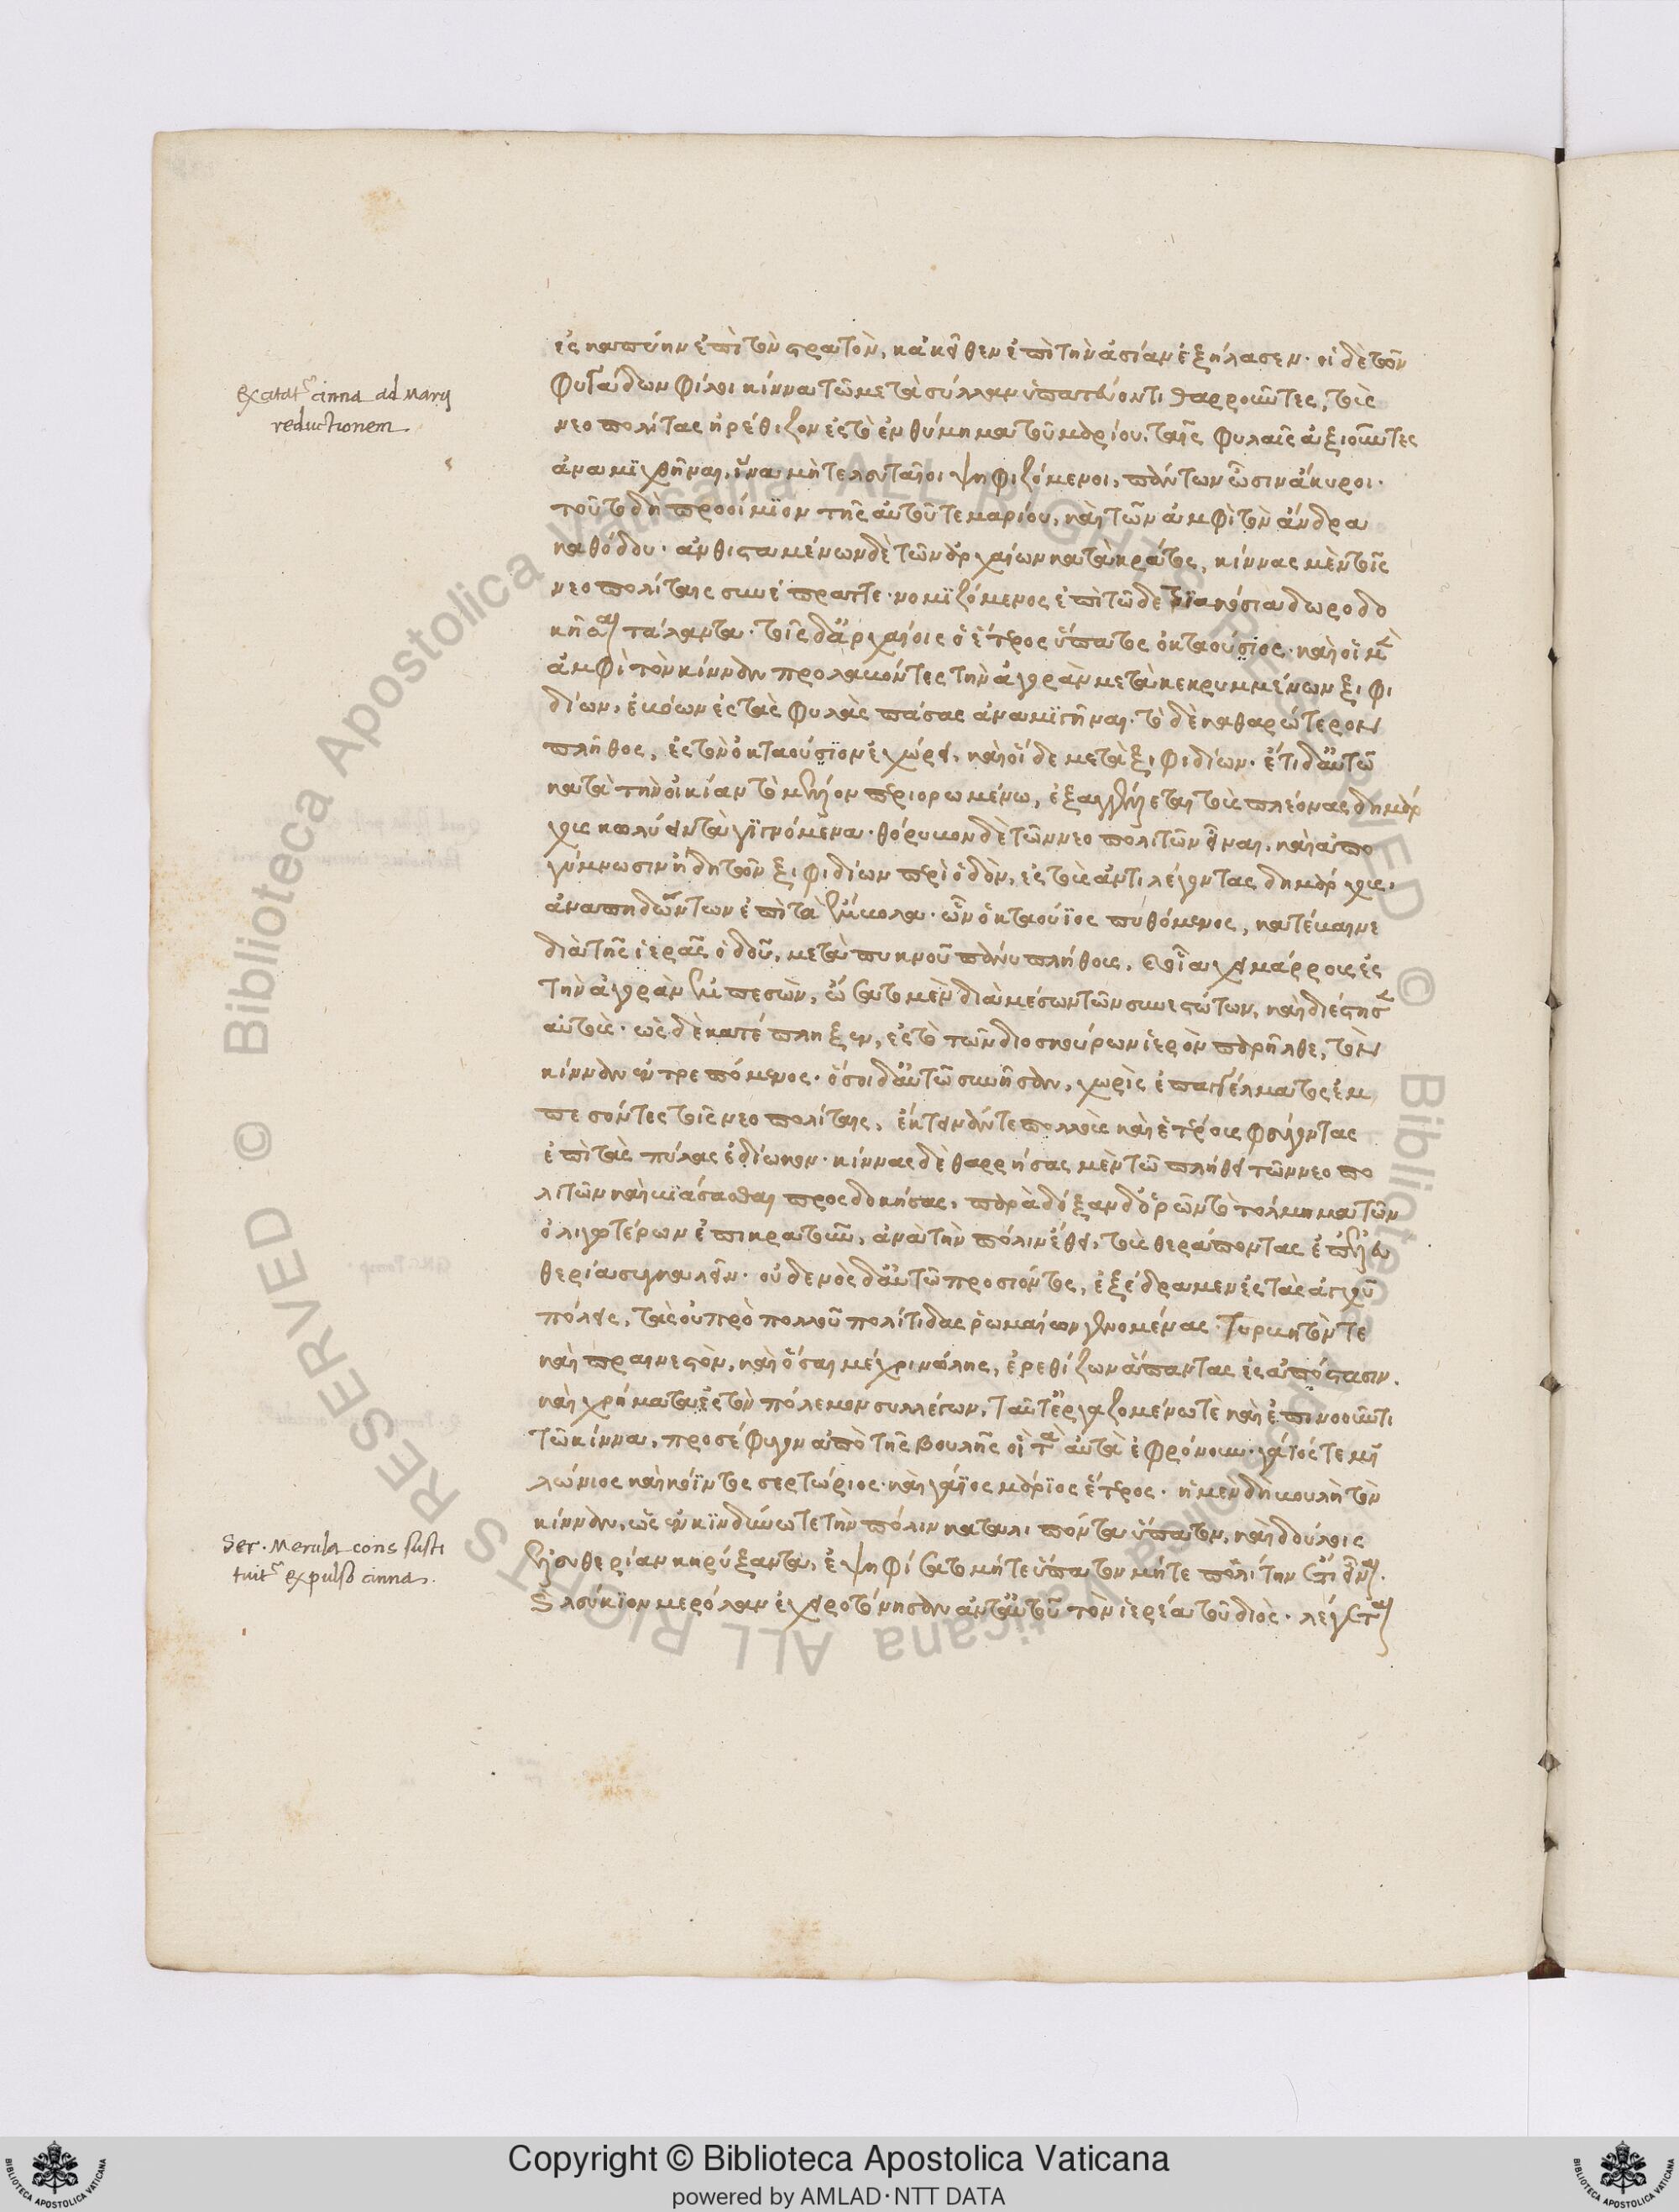 ἐς καπύην ἐπὶ τὸν στρατὸν, κἀκεῖθεν ἐπὶ τὴν ἀσίαν ἐξήλασεν. οἱ δὲ τῶν
Excitatr cinna ad Marij
reductionem
φυγάδων φίλοι κίννα τῶ μετὰ σύλλαν ὑπατεύοντι θαρροῦντες, τοὺς
νεοπολίτας ἠρέθιζον ἐς τὸ ἐνθύμημα τοῦ μαρίου, ταῖς φυλαῖς ἀξιοῦντες
ἀναμϊχθῆναι, ἵνα μὴ τελευταῖοι ψηφιζόμενοι, πάντων ὦσιν ἄκυροι.
τοῦτο δὴ προοίμϊον τῆς αὐτοῦ τε μαρίου, καὶ τῶν ἀμφὶ τὸν ἄνδρα
καθόδου. ἀνθισταμένων δὲ τῶν ἀρχαίων κατὰ κράτος, κίννας μὲν τοῖς
νεοπολίταις συνέπραττε. νομϊζόμενος ἐπὶ τῶδε τριακόσια δωροδο
κῆσαι τάλαντα. τοῖς δ' ἀρχαίοις ὁ ἕτερος ὕπατος ὀκταούσιος. καὶ οἱ μὲν
ἀμφὶ τὸν κίνναν προλαβόντες τὴν ἀγορὰν μετὰ κεκρυμμένων ξιφι
δίων, ἐβόων ἐς τὰς φυλὰς πάσας ἀναμϊγῆναι. τὸ δὲ καθαρώτερον
πλῆθος, ἐς τὸν ὀκταούσϊον ἐχώρει, καὶ οἵδε μετὰ ξιφιδίων. ἔτι δ' αὐτῶ
κατὰ τὴν οἰκίαν τὸ μέλλον περιορωμένω, ἐξαγγέλλεται τοὺς πλέονας δημάρ
χους κωλύειν τὰ γϊγνόμενα. θόρυβον δὲ τῶν νεοπολιτῶν εἶναι, καὶ ἀπο
γύμνωσιν ἤδη τῶν ξιφιδίων περὶ ὁδὸν, ἐς τοὺς ἀντιλέγοντας δημάρχους,
ἀναπηδώντων ἐπὶ τὰ ἔμβολα. ὧν ὀκταούϊος πυθόμενος, κατέβαινε
διὰ τῆς ἱερᾶς ὁδοῦ, μετὰ πυκνοῦ πάνυ πλήθους, οἷα χειμάρρους ἐς
τὴν ἀγορὰν ἐμπεσὼν, ὤσατο μὲν διὰ μέσων τῶν συνεστώτων, καὶ διέστησεν
αὐτοὺς. ὡς δὲ κατέπληξεν, ἐς τὸ τῶν διοσκούρων ἱερὸν παρῆλθε, τὸν
κίνναν ἐκτρεπόμενος. ὅσοι δ' αὐτῶ συνῆσαν, χωρὶς ἐπαγγέλματος ἐμ
πεσόντες τοῖς νεοπολίταις, ἔκτεινάν τε πολλοὺς καὶ ἑτέρους φεύγοντας
ἐπὶ τὰς πύλας ἐδίωκον. κίννας δὲ θαρρήσας μὲν τῶ πλήθει τῶν νεοπο
λιτῶν καὶ βϊάσασθαι προσδοκήσας, παρὰ δόξαν δ' ὁρῶν τὸ τόλμημα τῶν
ὀλιγωτέρων ἐπικρατοῦν, ἀνὰ τὴν πόλιν ἔθει, τοὺς θεράποντας ἐπ' ἐλευ
θερία συγκαλῶν. οὐδενὸς δ' αὐτῶ προσιόντος, ἐξέδραμεν ἐς τὰς ἀγχοῦ
πόλεις, τὰς οὐ πρὸ πολλοῦ πολίτιδας ῥωμαίων γενομένας. Τυρβητόν τε
καὶ πραινεστὸν, καὶ ὅσαι μέχρι νώλης, ἐρεθίζων ἅπαντας ἐς ἀπόστασιν.
καὶ χρήματα ἐς τὸν πόλεμον συλλέγων. Ταῦτ' ἐργαζομένω τὲ καὶ ἐπινοοῦντι
τῶ κίννα, προσέφυγον ἀπὸ τῆς βουλῆς οἳ τὰ αὐτὰ ἐφρόνουν. γάϊός τε μϊ
λώνιος καὶ κόϊντος σερτώριος. καὶ γάϊος μάρϊος ἕτερος. ἡ μὲν δὴ βουλὴ τὸν
Ser. Merula cons susti
tuitr expulso cinna.
κίνναν, ὡς ἐν κϊνδύνω τε τὴν πόλιν καταλιπόντα ὕπατον, καὶ δούλοις
ἐλευθερίαν κηρύξαντα, ἐψηφίσατο μήτε ὕπατον μήτε πολίτην ἔτι εἶναι.
καὶ λεύκϊον μερόλαν ἐχειροτόνησαν ἀντ' αὐτοῦ τὸν ἱερέα τοῦ διὸς. λέγεται
Copyright © Biblioteca Apostolica Vaticana
powered by AMLAD·NTT DATA